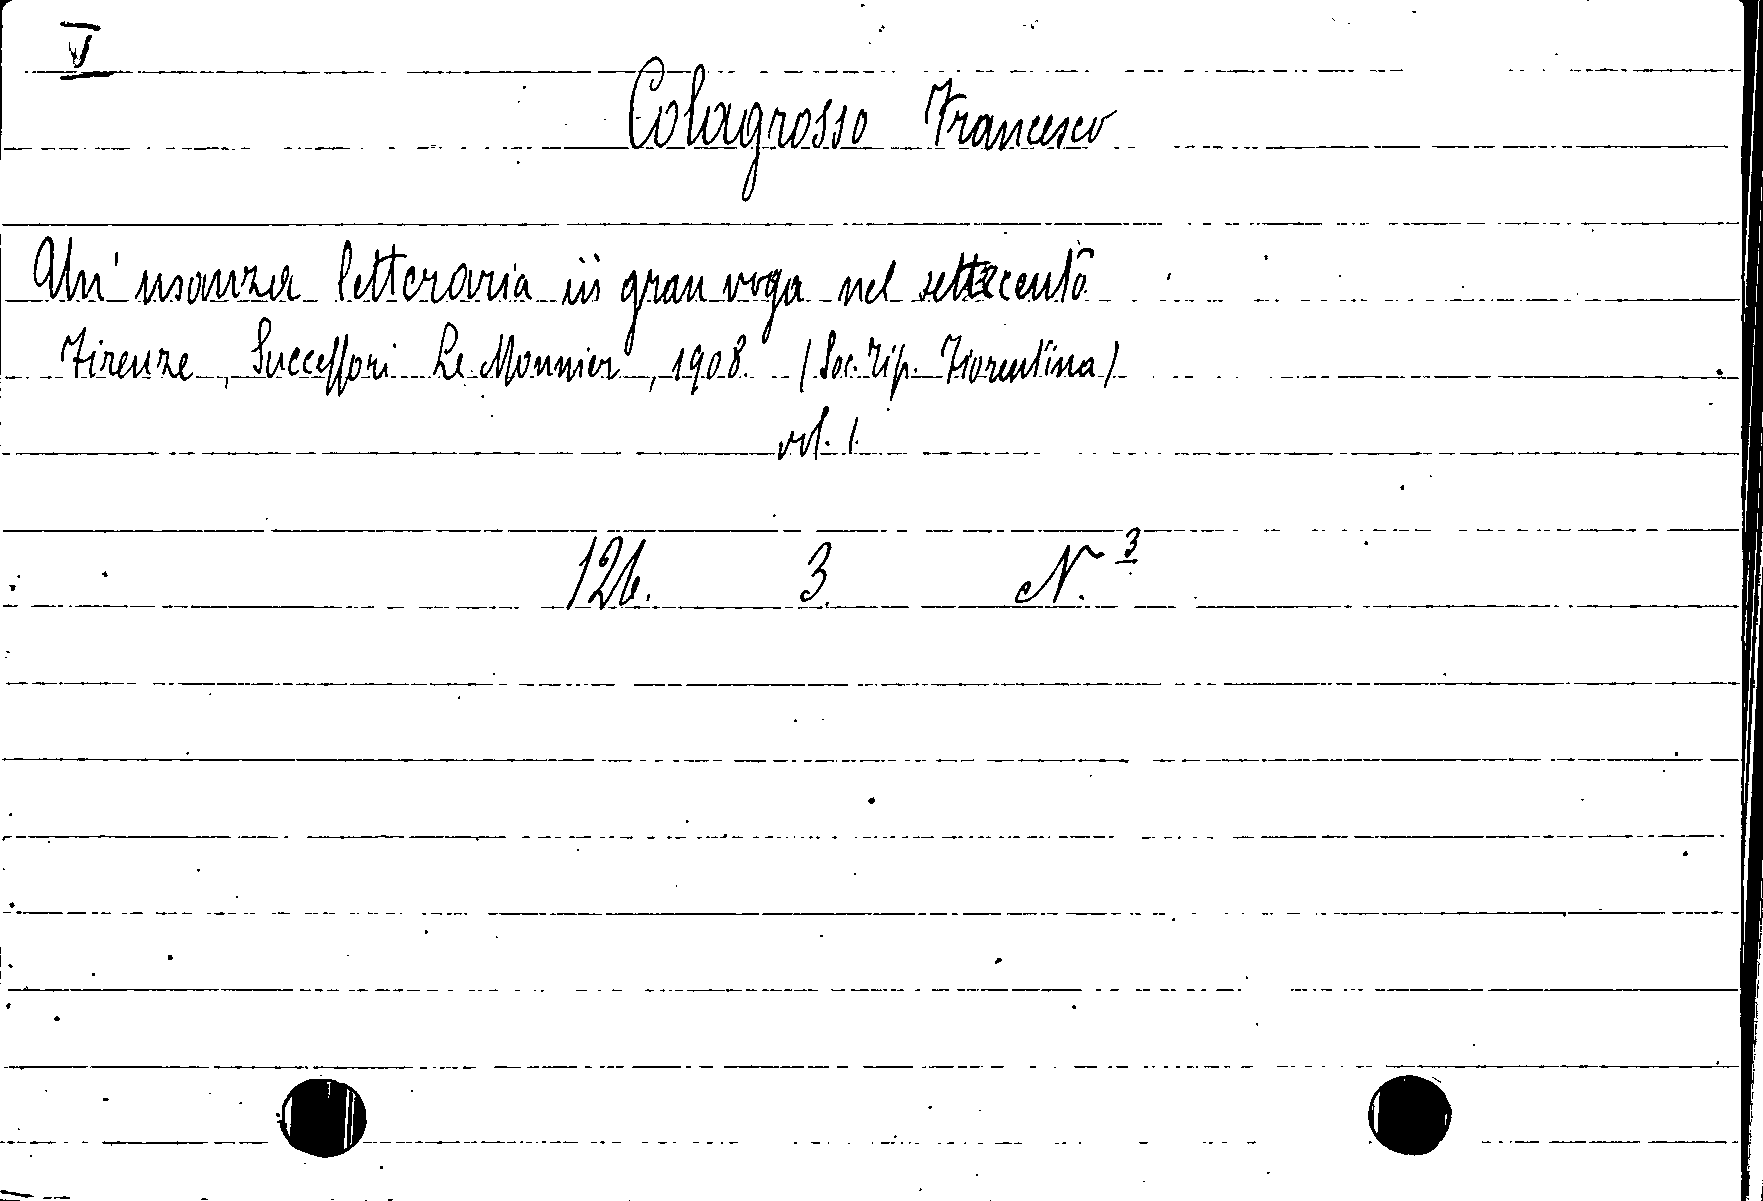 V
Colagrosso Francesco
Un' usanza letteraria in gran voga nel settecento
Firenze, Successori Le Monnier, 1908. (Soc. Tip. Fiorentina)
vol. 1.
126. 3. N. 3